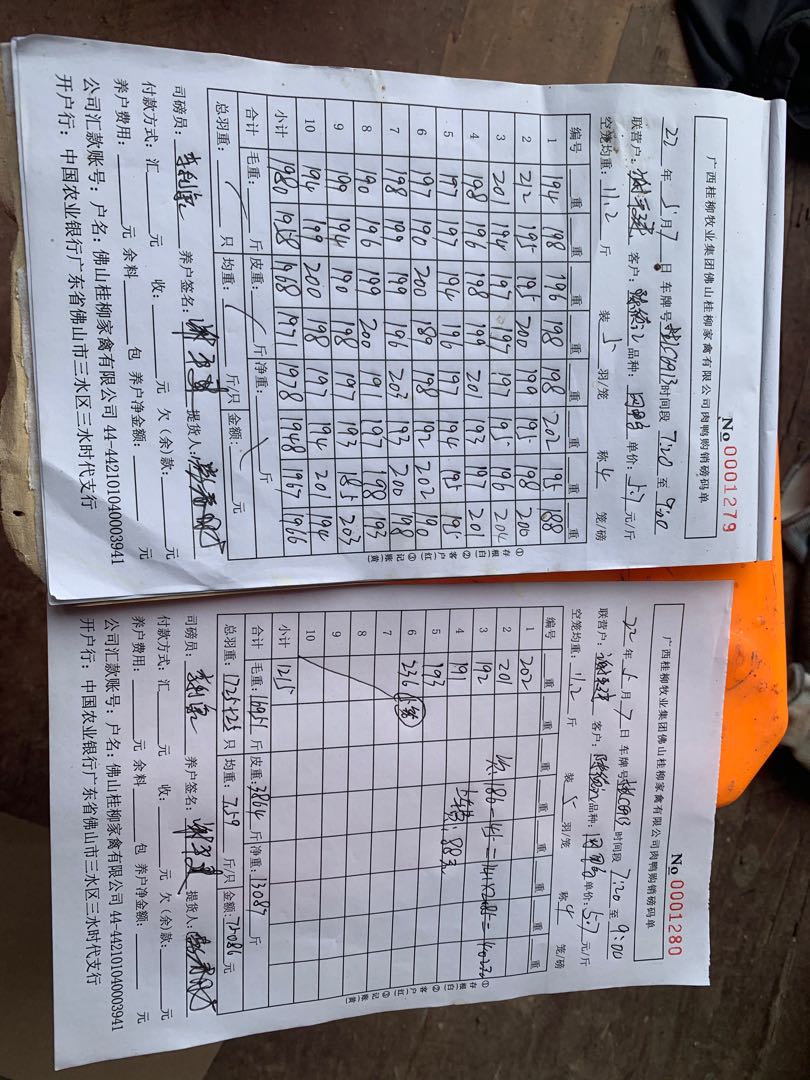 广西桂柳牧业集团佛山桂柳家禽有限公司肉鸭购销磅码单
No 0001279
22 年 5 月 7 日 车牌号 时间段 7:20 至 9:00
联营户: 客户: 品种: 单价: 5.7 元/斤
空笼均重: 11.2 斤 装 5 羽/笼 称 4 笼/磅
编号 重 重 重 重 重 重 重 重
1 194 198 196 198 198 202 195 188
2 212 195 195 200 199 195 198 200
3 201 194 197 197 197 195 196 204
4 198 196 198 199 201 193 197 201
5 197 197 194 196 197 194 195 195
6 197 190 200 189 198 192 202 190
7 198 199 199 196 203 193 200 198
8 190 196 199 200 191 197 198 193
9 199 194 190 198 197 193 185 203
10 194 199 200 198 197 194 201 194
小计 1980 1958 1968 1971 1978 1948 1967 1966
合计 毛重: 斤 皮重: 斤 净重: 斤
总羽重: 只 均重: 斤/只 金额: 元
①存根(白) ②客户(红) ③记账(黄)
司磅员: 养户签名: 提货人:
付款方式:汇 元 收: 元 欠(余)款: 元
养户费用: 元 余料 包 养户净金额: 元
公司汇款账号:户名:佛山桂柳家禽有限公司 44-442101040003941
开户行:中国农业银行广东省佛山市三水区三水时代支行
广西桂柳牧业集团佛山桂柳家禽有限公司肉鸭购销磅码单
No 0001280
22 年 5 月 7 日 车牌号 时间段 7:20 至 9:00
联营户: 客户: 品种: 单价: 5.7 元/斤
空笼均重: 11.2 斤 装 5 羽/笼 称 4 笼/磅
编号 重 重 重 重 重 重 重 重
1 202
2 201 次:186-45=141×2.85=402元
3 192
4 191 88元
5 193
6 236 5笼
7
8
9
10
小计 1215
合计 毛重: 16951 斤 皮重: 3864 斤 净重: 13087 斤
总羽重: 只 均重: 7.59 斤/只 金额: 元
①存根(白) ②客户(红) ③记账(黄)
司磅员: 养户签名: 提货人:
付款方式:汇 元 收: 元 欠(余)款: 元
养户费用: 元 余料 包 养户净金额: 元
公司汇款账号:户名:佛山桂柳家禽有限公司 44-442101040003941
开户行:中国农业银行广东省佛山市三水区三水时代支行